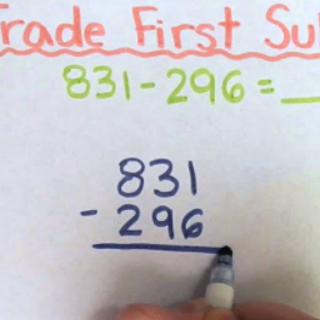 Trade First Su
831-296=__
831
- 296